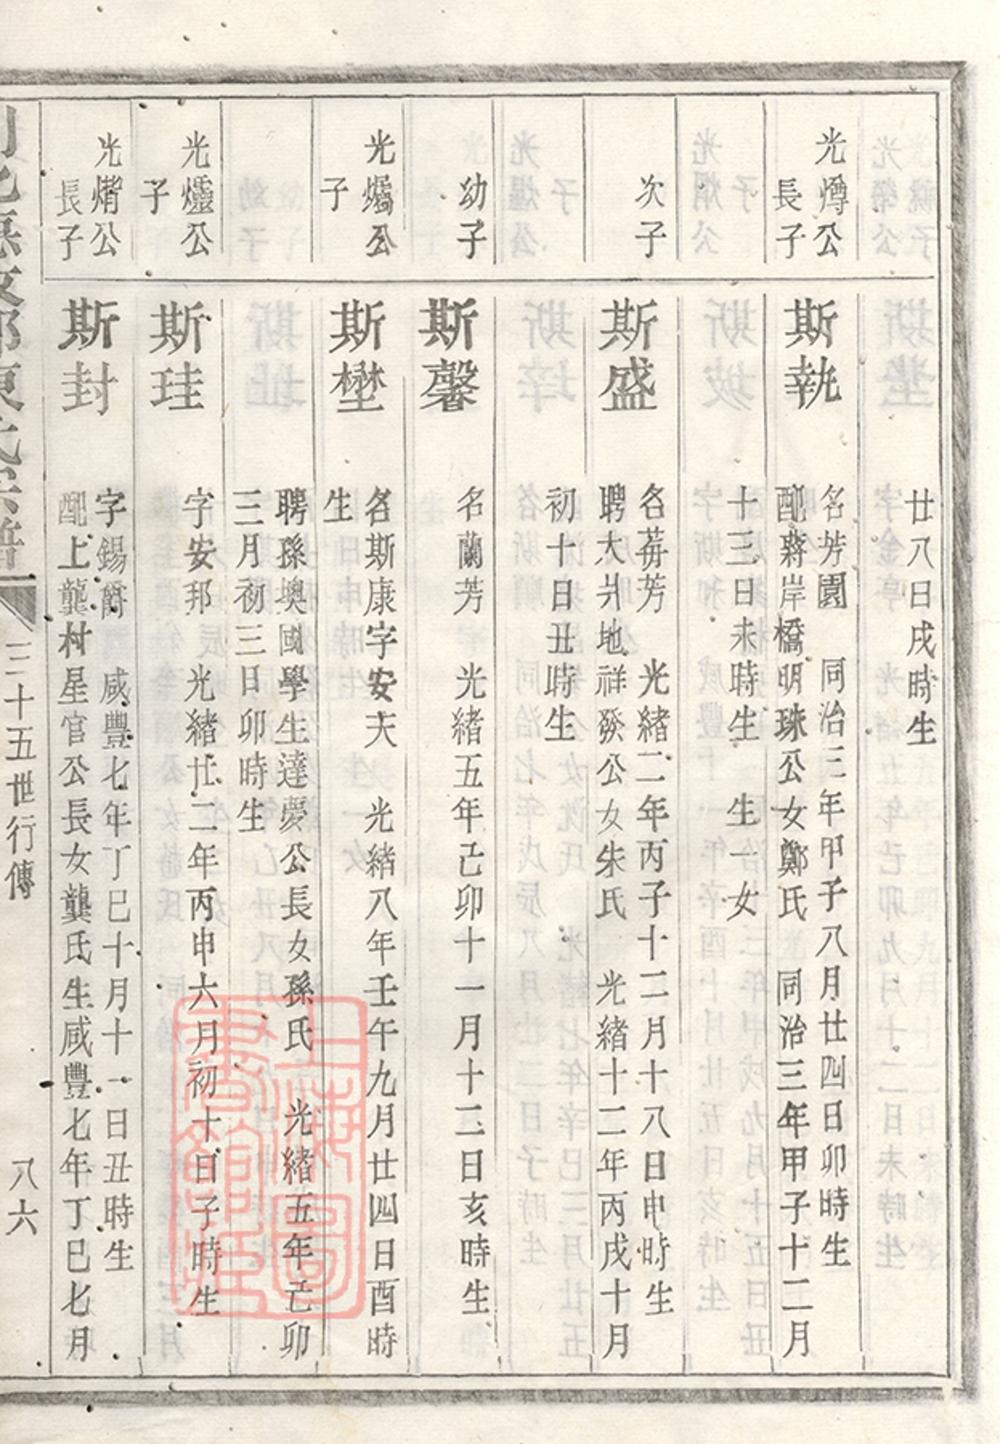 廿八日戌時生
光燇公
長子
斯執
名芳園 同治三年甲子八月廿四日卯時生
配蔣岸橋明珠公女鄭氏 同治三年甲子十二月
十三日未時生 生一女
次子
斯盛
名苒芳 光緒二年丙子十二月十八日申時生
聘大爿地祥發公女朱氏 光緒十二年丙戌十月
初十日丑時生
幼子
斯馨
名蘭芳 光緒五年己卯十一月十二日亥時生
公
子
斯壄
名斯康字安夫 光緒八年壬午九月廿四日酉時
生
聘孫墺國學生達夢公長女孫氏 光緒五年己卯
三月初三日卯時生
光爧公
子
斯珪
字安邦 光緒廿二年丙申六月初十日子時生
公
長子
斯封
字錫爵 咸豐七年丁巳十月十一日丑時生
配上龔村星官公長女龔氏生咸豐七年丁巳七月
三十五世行傳
八六
上海圖書館藏